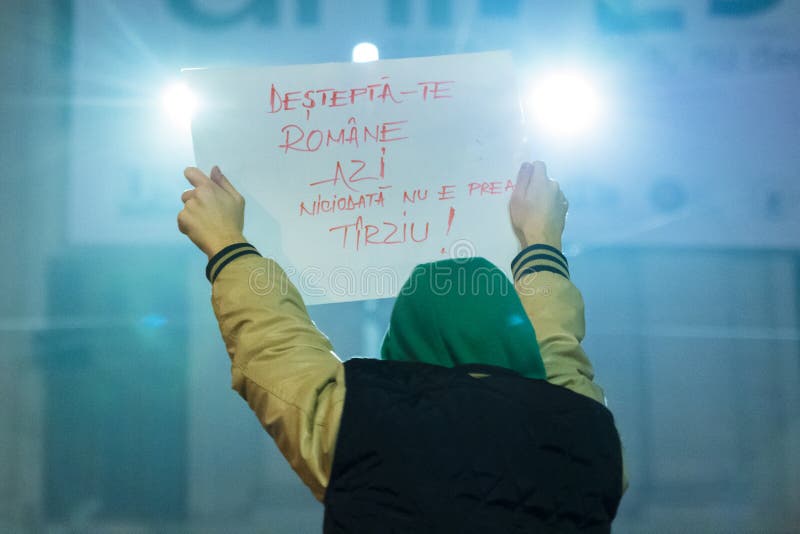 DEȘTEPTĂ-TE
ROMÂNE
AZI
NICIODATĂ NU E PREA
TÎRZIU!